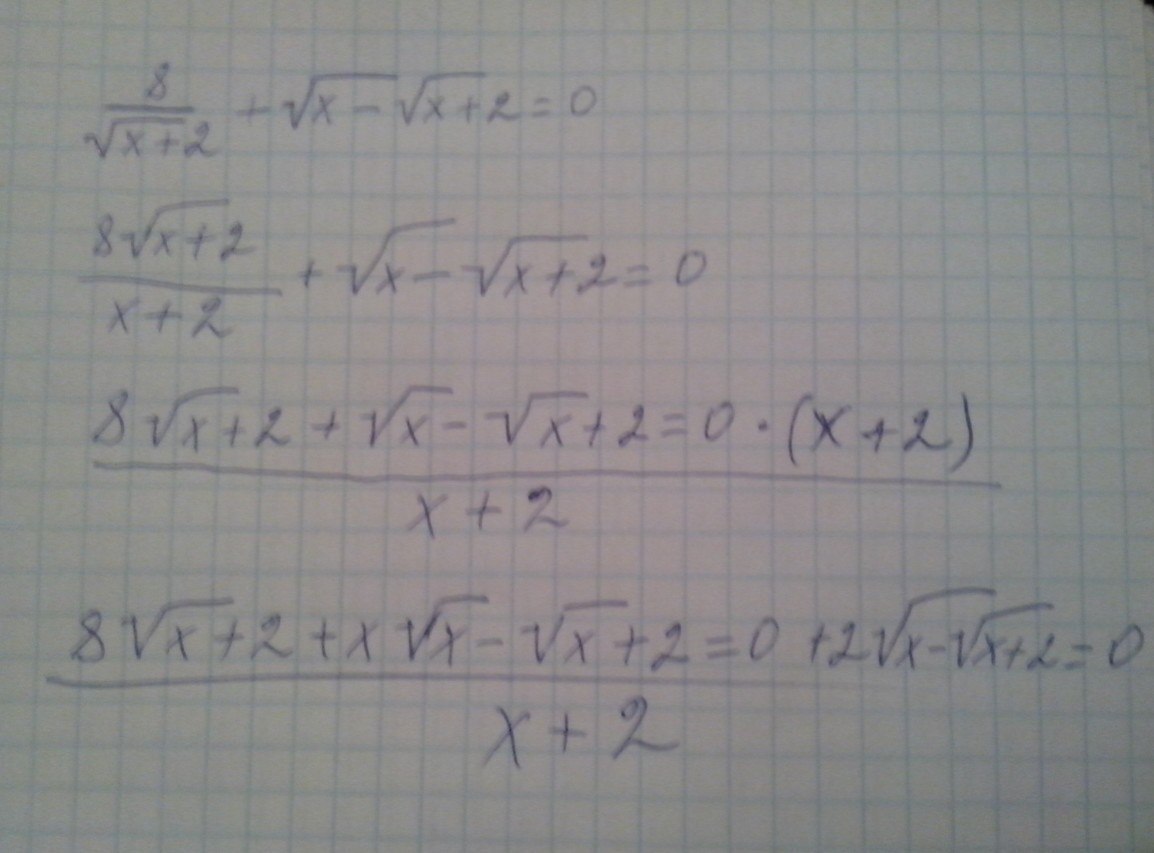 8/√(x+2) + √x - √(x+2) = 0
8√(x+2)/(x+2) + √x - √(x+2) = 0
8√x+2 + √x - √x+2 = 0 · (x+2)
x+2
8√x+2 + x√x - √x+2 = 0 +2√x-√x+2 = 0
x+2